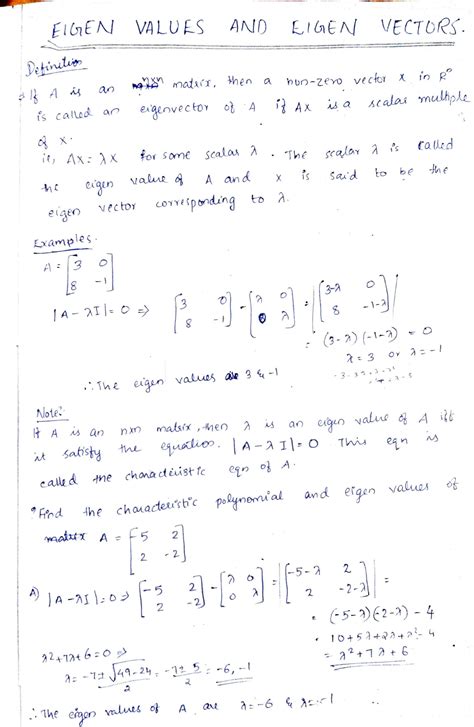 EIGEN VALUES AND EIGEN VECTORS.
Definition
* If A is an nxn matrix, then a non-zero vector x in Rⁿ
is called an eigenvector of A if Ax is a scalar multiple
of x.
ie, Ax = λx for some scalar λ. The scalar λ is called
the eigen value of A and x is said to be the
eigen vector corresponding to λ.
Examples.
A = [3 0
8 -1]
|A-λI| = 0 => [3 0
8 -1] - [λ 0
0 λ] = |[3-λ 0
8 -1-λ]|
= (3-λ)(-1-λ) = 0
λ = 3 or λ = -1
∴ The eigen values are 3 & -1
Note:
If A is an nxn matrix, then λ is an eigen value of A iff
it satisfy the equation. |A-λI| = 0 This eqn is
called the characteristic eqn of A.
* Find the characteristic polynomial and eigen values of
matrix A = [-5 2
2 -2]
A) |A-λI| = 0 => [-5 2
2 -2] - [λ 0
0 λ] = |[-5-λ 2
2 -2-λ]| =
= (-5-λ)(2-λ) - 4
= 10+5λ+2λ+λ²-4
= λ²+7λ+6
λ²+7λ+6=0 =>
λ = -7±√49-24/2 = -7±5/2 = -6, -1
∴ The eigen values of A are λ=-6 & λ=-1